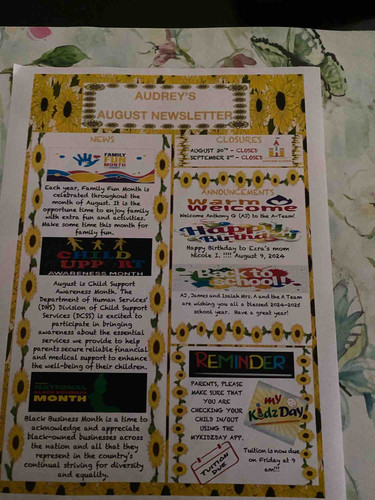 AUDREY'S
AUGUST NEWSLETTER
NEWS
FAMILY
FUN
MONTH
Each year, Family Fun Month is
celebrated throughout the
month of August. It is the
opportune time to enjoy family
with extra fun and activities.
Make some time this month for
family fun.
CHILD
SUPPORT
AWARENESS MONTH
August is Child Support
Awareness Month. The
Department of Human Services'
(DHS) Division of Child Support
Services (DCSS) is excited to
participate in bringing
awareness about the essential
services we provide to help
parents secure reliable financial
and medical support to enhance
the well-being of their children.
NATIONAL
MONTH
Black Business Month is a time to
acknowledge and appreciate
black-owned businesses across
the nation and all that they
represent in the country's
continual striving for diversity
and equality.
CLOSURES
AUGUST 30TH - CLOSED
SEPTEMBER 2ND - CLOSED
ANNOUNCEMENTS
Warm
Welcome
Welcome Anthony G (AJ) to the A-Team!
Happy
Birthday
Happy Birthday to Ezra's mom
Nicole I. !!!! August 9, 2024
Back to
School!
AJ, James and Isaiah Mrs. A and the A Team
are wishing you all a blessed 2024-2025
school year. Have a great year!
REMINDER
PARENTS, PLEASE
MAKE SURE THAT
YOU ARE
CHECKING YOUR
CHILD IN/OUT
USING THE
MYKIDZDAY APP.
my
KidzDay
TUITION
DUE
Tuition is now due
on Friday at 9
am!!!